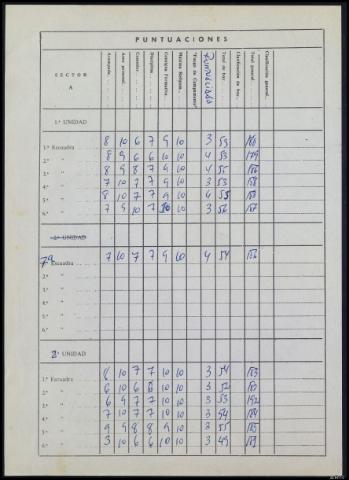 PUNTUACIONES
SECTOR A
Acampada
Aseo personal
Cometido
Disciplina
Consigna Formativa
Marcha Reloj
"Fuego de Campamento"
Puntualidad
Total de hoy
Clasificación de hoy
Total general
Clasificación general
1.ª UNIDAD
1.ª Escuadra 8 10 6 7 9 10 3 53
2.ª " 8 9 6 6 10 10 4 53
3.ª " 8 9 8 7 9 10 4 55
4.ª " 7 10 7 7 9 10 3 53
5.ª " 8 10 7 7 9 10 4 55
6.ª " 7 9 10 7 10 10 3 56
2.ª UNIDAD
7ª Escuadra 7 10 7 7 9 10 4 54 156
2.ª "
3.ª "
4.ª "
5.ª "
6.ª "
2ª UNIDAD
1.ª Escuadra 8 10 7 7 10 10 3
2.ª " 6 10 6 10 10 3 52
3.ª " 6 9 7 7 10 10 3 53
4.ª " 7 10 7 7 10 10 3 54
5.ª " 9 9 8 8 9 10 3 55
6.ª " 3 10 6 6 10 10 3 49